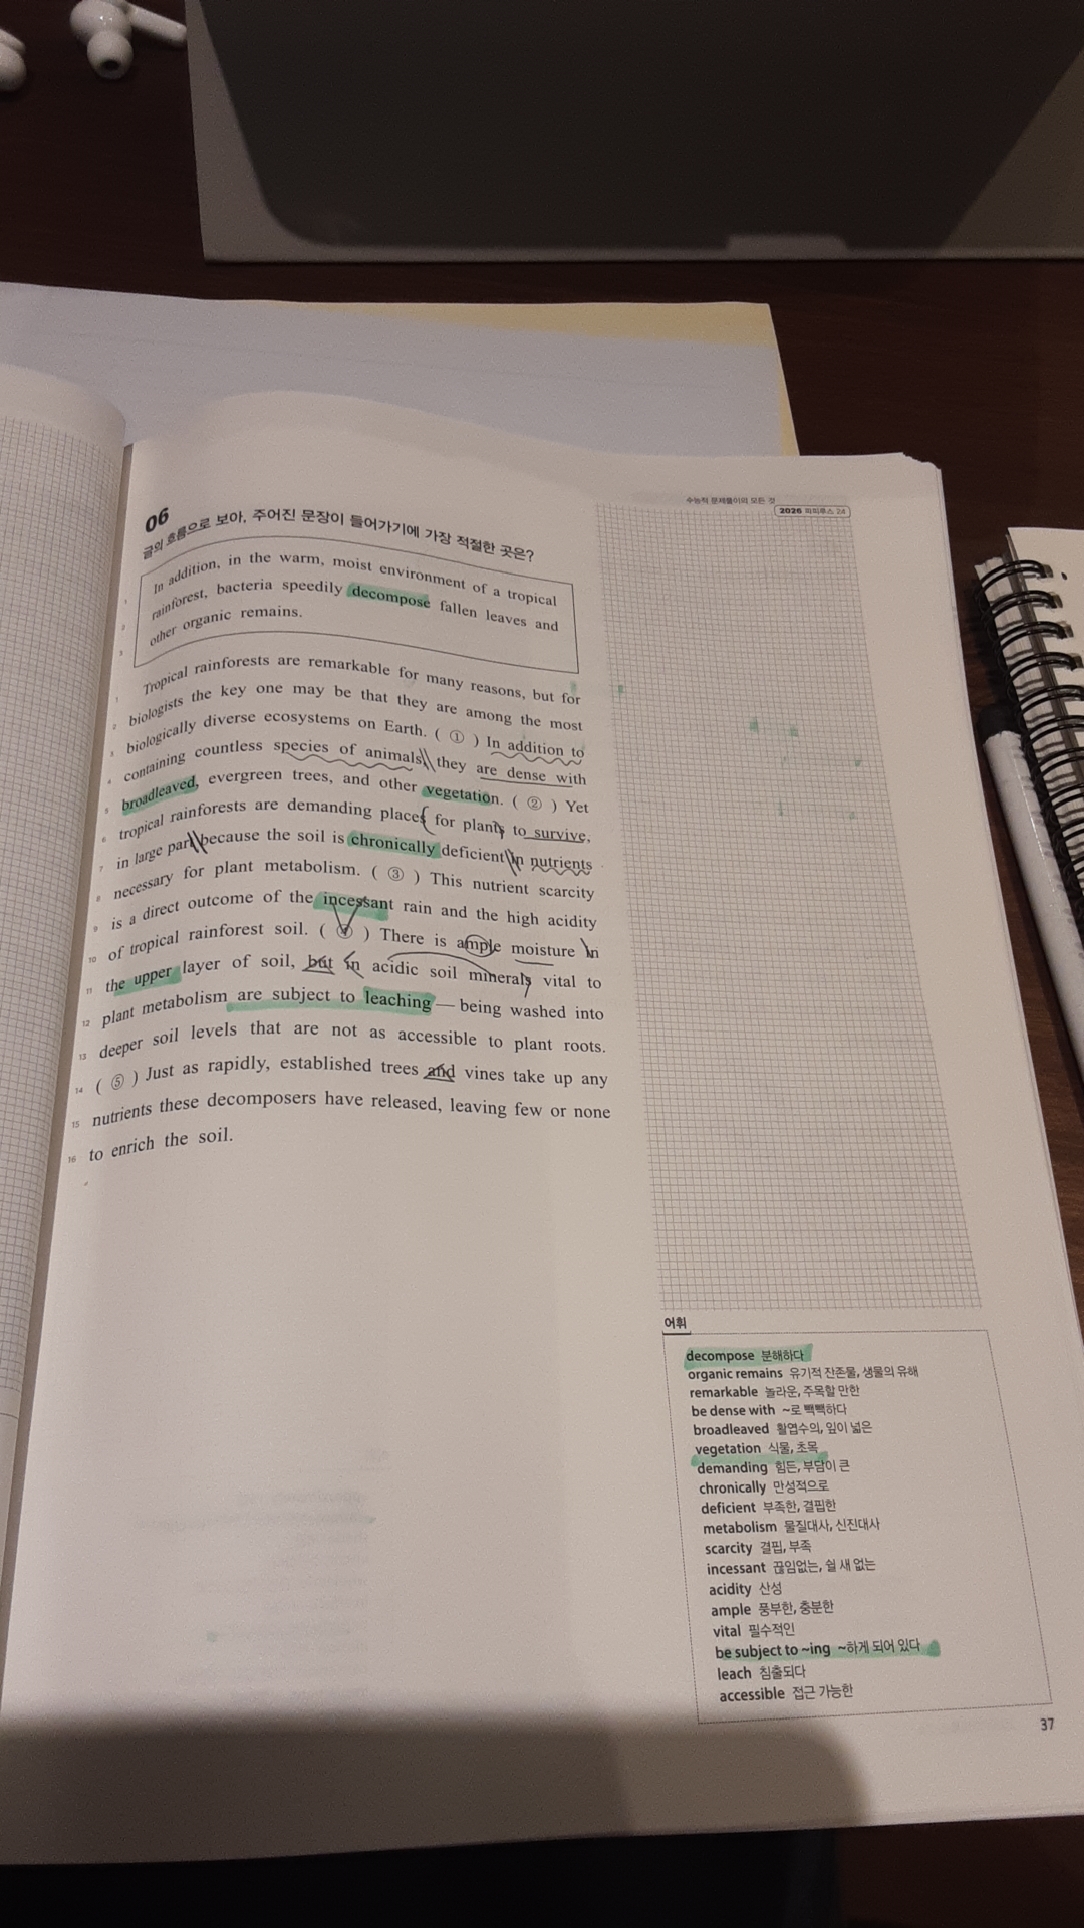 수능적 문제풀이의 모든 것
2026 피피루스 24
06
글의 흐름으로 보아, 주어진 문장이 들어가기에 가장 적절한 곳은?
1 In addition, in the warm, moist environment of a tropical
2 rainforest, bacteria speedily decompose fallen leaves and
3 other organic remains.
1 Tropical rainforests are remarkable for many reasons, but for
2 biologists the key one may be that they are among the most
3 biologically diverse ecosystems on Earth. ( ① ) In addition to
4 containing countless species of animals, they are dense with
5 broadleaved, evergreen trees, and other vegetation. ( ② ) Yet
6 tropical rainforests are demanding places for plants to survive,
7 in large part because the soil is chronically deficient in nutrients
8 necessary for plant metabolism. ( ③ ) This nutrient scarcity
9 is a direct outcome of the incessant rain and the high acidity
10 of tropical rainforest soil. ( ④ ) There is ample moisture in
11 the upper layer of soil, but in acidic soil minerals vital to
12 plant metabolism are subject to leaching — being washed into
13 deeper soil levels that are not as accessible to plant roots.
14 ( ⑤ ) Just as rapidly, established trees and vines take up any
15 nutrients these decomposers have released, leaving few or none
16 to enrich the soil.
어휘
decompose 분해하다
organic remains 유기적 잔존물, 생물의 유해
remarkable 놀라운, 주목할 만한
be dense with ~로 빽빽하다
broadleaved 활엽수의, 잎이 넓은
vegetation 식물, 초목
demanding 힘든, 부담이 큰
chronically 만성적으로
deficient 부족한, 결핍한
metabolism 물질대사, 신진대사
scarcity 결핍, 부족
incessant 끊임없는, 쉴 새 없는
acidity 산성
ample 풍부한, 충분한
vital 필수적인
be subject to ~ing ~하게 되어 있다
leach 침출되다
accessible 접근 가능한
37